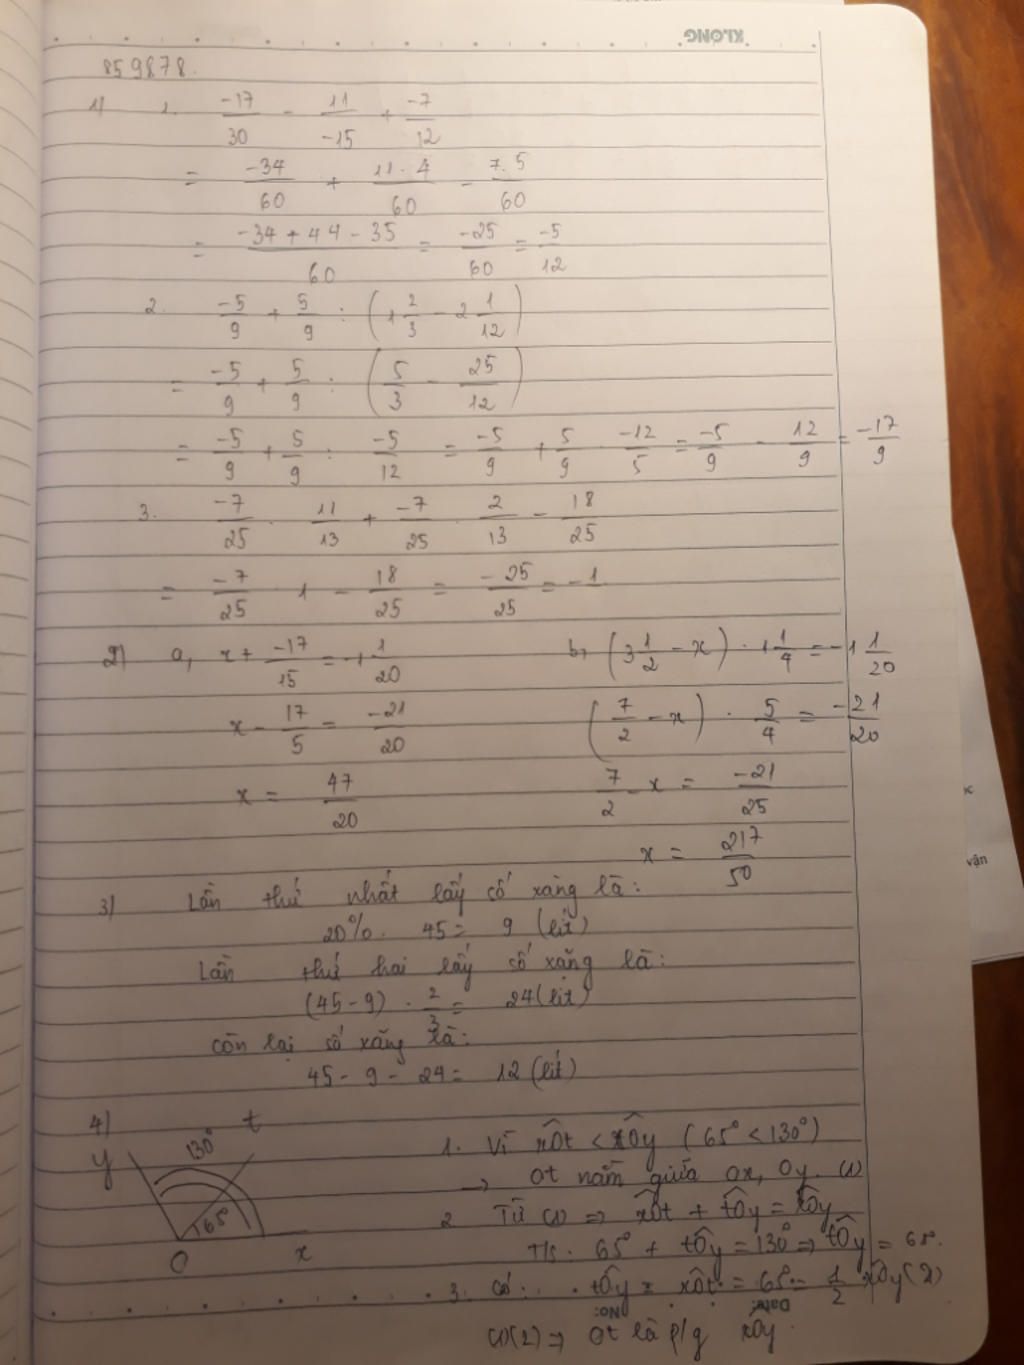 KLONG
859878.
1) 1. -17/30 - 11/-15 + -7/12
= -34/60 + 11.4/60 - 7.5/60
= -34+44-35/60 = -25/60 = -5/12
2. -5/9 + 5/9 : (1 2/3 - 2 1/12)
= -5/9 + 5/9 : (5/3 - 25/12)
= -5/9 + 5/9 : -5/12 = -5/9 + 5/9 . -12/5 = -5/9 - 12/9 = -17/9
3. -7/25 . 11/13 + -7/25 . 2/13 - 18/25
= -7/25 . 1 - 18/25 = -25/25 = -1
2) a, x + -17/15 = -1 1/20 b, (3 1/2 - x) . 1 1/4 = -1 1/20
x - 17/5 = -21/20 (7/2 - x) . 5/4 = -21/20
x = 47/20 7/2 - x = -21/25
x = 217/50
3) Lần thứ nhất lấy số xăng là:
20%. 45 = 9 (lít)
Lần thứ hai lấy số xăng là:
(45-9) . 2/3 = 24 (lít)
còn lại số xăng là:
45 - 9 - 24 = 12 (lít)
4) y 130° t 65° O x
1. Vì xOt < xOy (65° < 130°)
→ Ot nằm giữa Ox, Oy. (1)
2 Từ (1) ⇒ xOt + tOy = xOy
T/s: 65° + tOy = 130° ⇒ tOy = 65°.
3. Có: tOy = xOt = 65° = 1/2 xOy (2)
Date: No:
(1)(2) ⇒ Ot là p/g xOy.
vận